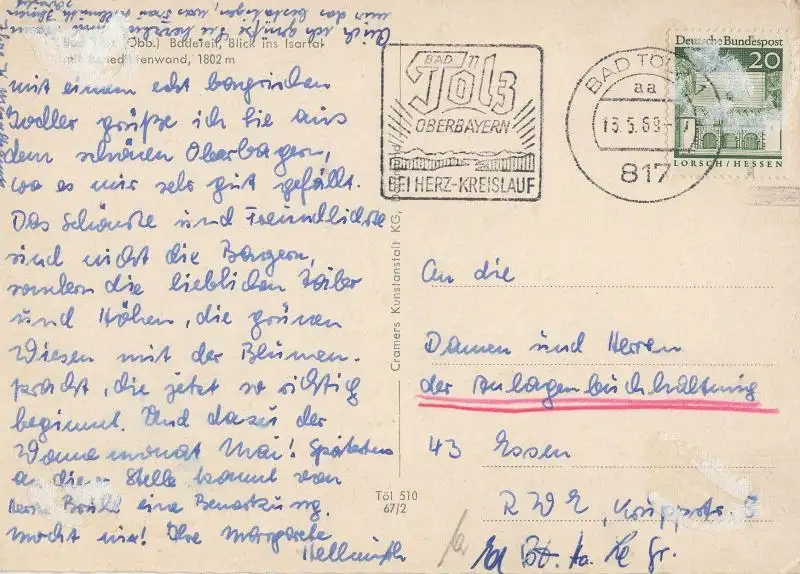 Auch ich grüße Sie herzlich
(Obb.) Badeteil, Blick ins Isartal
mit Benediktenwand, 1802 m
mit einem echt bayrischen
Jodler grüße ich Sie aus
dem schönen Oberbayern,
wo es mir sehr gut gefällt.
Das Schönste und Freundlichste
sind nicht die Bayern,
sondern die lieblichen Täler
und Höhen, die grünen
Wiesen mit der Blumen-
pracht, die jetzt so richtig
beginnt. Und dazu der
Wonnemonat Mai! Spätestens
an dieser Stelle kommt von
Herrn Brühl eine Bemerkung.
Macht nix! Ihre Margarete
Hellmuth
Cramers Kunstanstalt KG,
Töl 510
67/2
BAD
Tölz
OBERBAYERN
BEI HERZ-KREISLAUF
BAD TÖLZ 1
aa
15.5.69
817
Deutsche Bundespost
20
LORSCH/HESSEN
An die
Damen und Herren
der Anlagenbuchhaltung
43 Essen
RWE, Kruppstr. 5